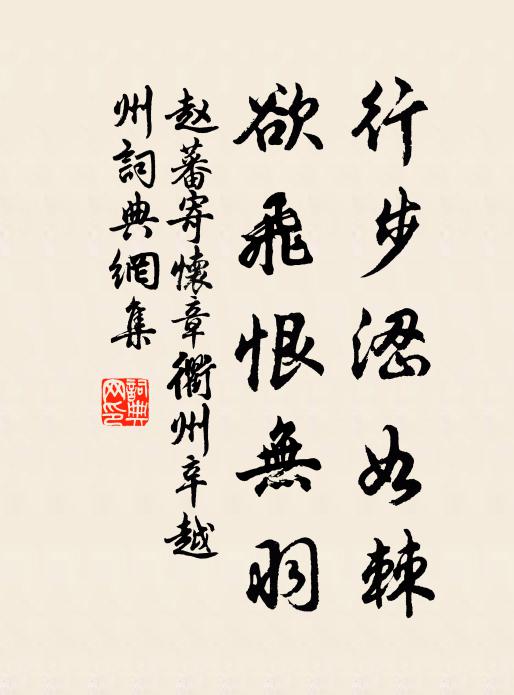 行步澀如棘
欲飛恨無羽
赵蕃寄懷章衢州辛越
州詞典網集
詞典
网印